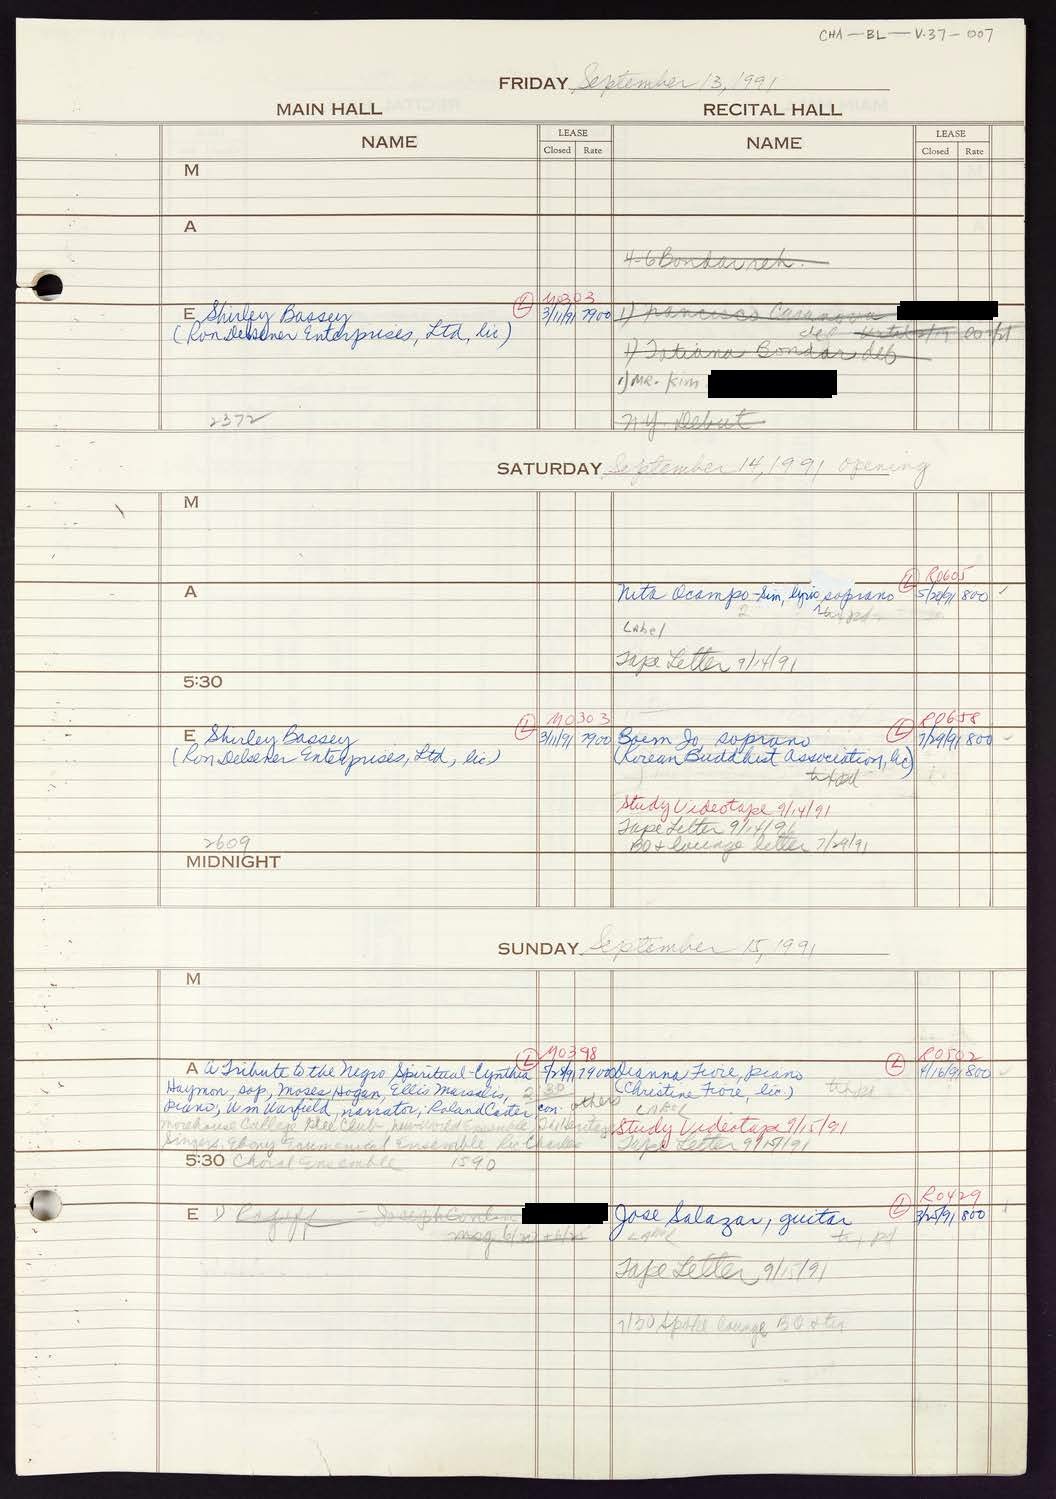 CHA-BL-V.37-007
FRIDAY September 13, 1991
MAIN HALL RECITAL HALL
NAME LEASE NAME LEASE
Closed Rate Closed Rate
M
A
4-6 Bondar reh.
M0303
E Shirley Bassey L 3/11/91 7900 1) Francisco Casanova
(Ron Delsener Enterprises, Ltd, lic) deb
1) Tatiana Bondar deb
1) MR. Kim
2372 N.Y. Debut
SATURDAY September 14, 1991 opening
M
R0605
A Nita Ocampo-Sim, lyric soprano L 5/20/91 800
2
Label
Tape Letter 9/14/91
5:30
M0303 R0658
E Shirley Bassey L 3/11/91 7900 Boem Jo, soprano L 7/29/91 800
(Ron Delsener Enterprises, Ltd, lic) (Korean Buddhist Association, lic)
Study Videotape 9/14/91
Tape Letter 9/14/91
2609 BO & lounge letter 7/29/91
MIDNIGHT
SUNDAY September 15, 1991
M
M0398 R0502
A A Tribute to the Negro Spiritual-Cynthia L 5/28/91 7900 Dianna Fiore, piano L 4/16/91 800
Haymon, sop, Moses Hogan, Ellis Marsalis, 2:30 (Christine Fiore, lic.)
piano, Wm Warfield, narrator, Roland Carter con. others LABEL
Morehouse College Glee Club- New World Ensemble, Heritage Study Videotape 9/15/91
Singers, Ebony Ecumenical Ensemble Ric Charles Tape Letter 9/15/91
5:30 Choral Ensemble 1590
R0429
E 1) - Joseph Jose Salazar, guitar L 3/25/91 800
msg LABEL
Tape Letter 9/15/91
7/30 lounge BO